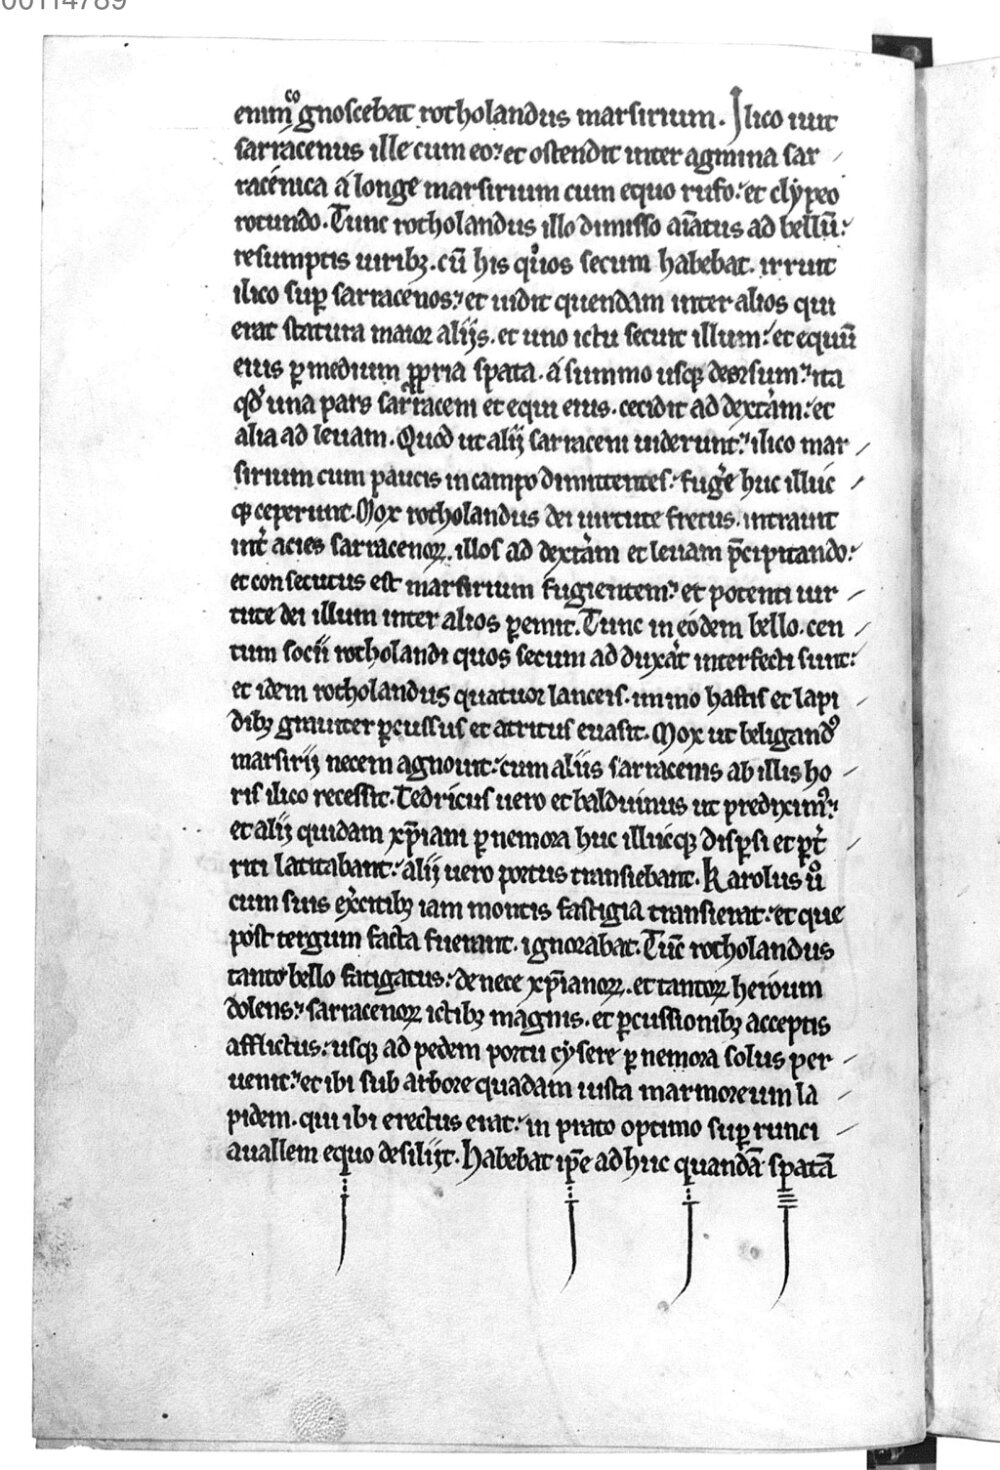 00114789
enim cognoscebat rotholandus marsirium. Ilico iuit
sarracenus ille cum eo: et ostendit inter agmina sar
racenica a longe marsirium cum equo rufo: et clypeo
rotundo. Tunc rotholandus illo dimisso aīatus ad bellū:
resumptis uiribꝫ. cū his qͥuos secum habebat. irruit
ilico suꝑ sarracenos: et uidit quendam inter alios qui
erat statura maior alijs. et uno ictu secuit illum: et equū
eius ꝑ medium ꝓpria spata. a summo usqꝫ deorsum: ita
qd̓ una pars sarraceni et equi eius. cecidit ad dext̓am: et
alia ad leuam. Quod ut alij sarraceni uiderunt: ilico mar
sirium cum paucis in campo dimittentes: fug̓e huc illuc
qꝫ ceperunt. Mox rotholandus dei uirtute fretus. intrauit
int̓ acies sarracenoꝝ. illos ad dext̓am et leuam p̄cipitando:
et consecutus est marsirium fugientem: et potenti uir
tute dei illum inter alios ꝑemit. Tunc in eodem bello. cen
tum socii rotholandi quos secum adduxat̓ interfecti sunt:
et idem rotholandus quatuor lanceis. immo hastis et lapi
dibꝫ grauiter ꝑcussus et attritus euasit. Mox ut beligandꝰ
marsirij necem agnouit: cum aliis sarracenis ab illis ho
ris ilico recessit. Tedricus uero et balduinus ut prediximꝰ:
et alij quidam xp̄iani ꝑ nemora huc illucqꝫ disꝑsi et ꝑt̓
riti latitabant: alij uero portus transiebant. Karolus uͦ
cum suis ex̓citibꝫ iam montis fastigia transierat: et que
post tergum facta fuerant. ignorabat. Tūc rotholandus
tanto bello fatigatus: de nece xp̄ianoꝝ. et tantoꝝ heroum
dolens: sarracenoꝝ ictibꝫ magnis. et ꝑcussionibꝫ acceptis
afflictus: usqꝫ ad pedem portu cysere ꝑ nemora solus per
uenit: et ibi sub arbore quadam iusta marmoreum la
pidem. qui ibi erectus erat: in prato optimo suꝑ runci
auallem equo desilijt. Habebat ip̄e adhuc quandā spatā